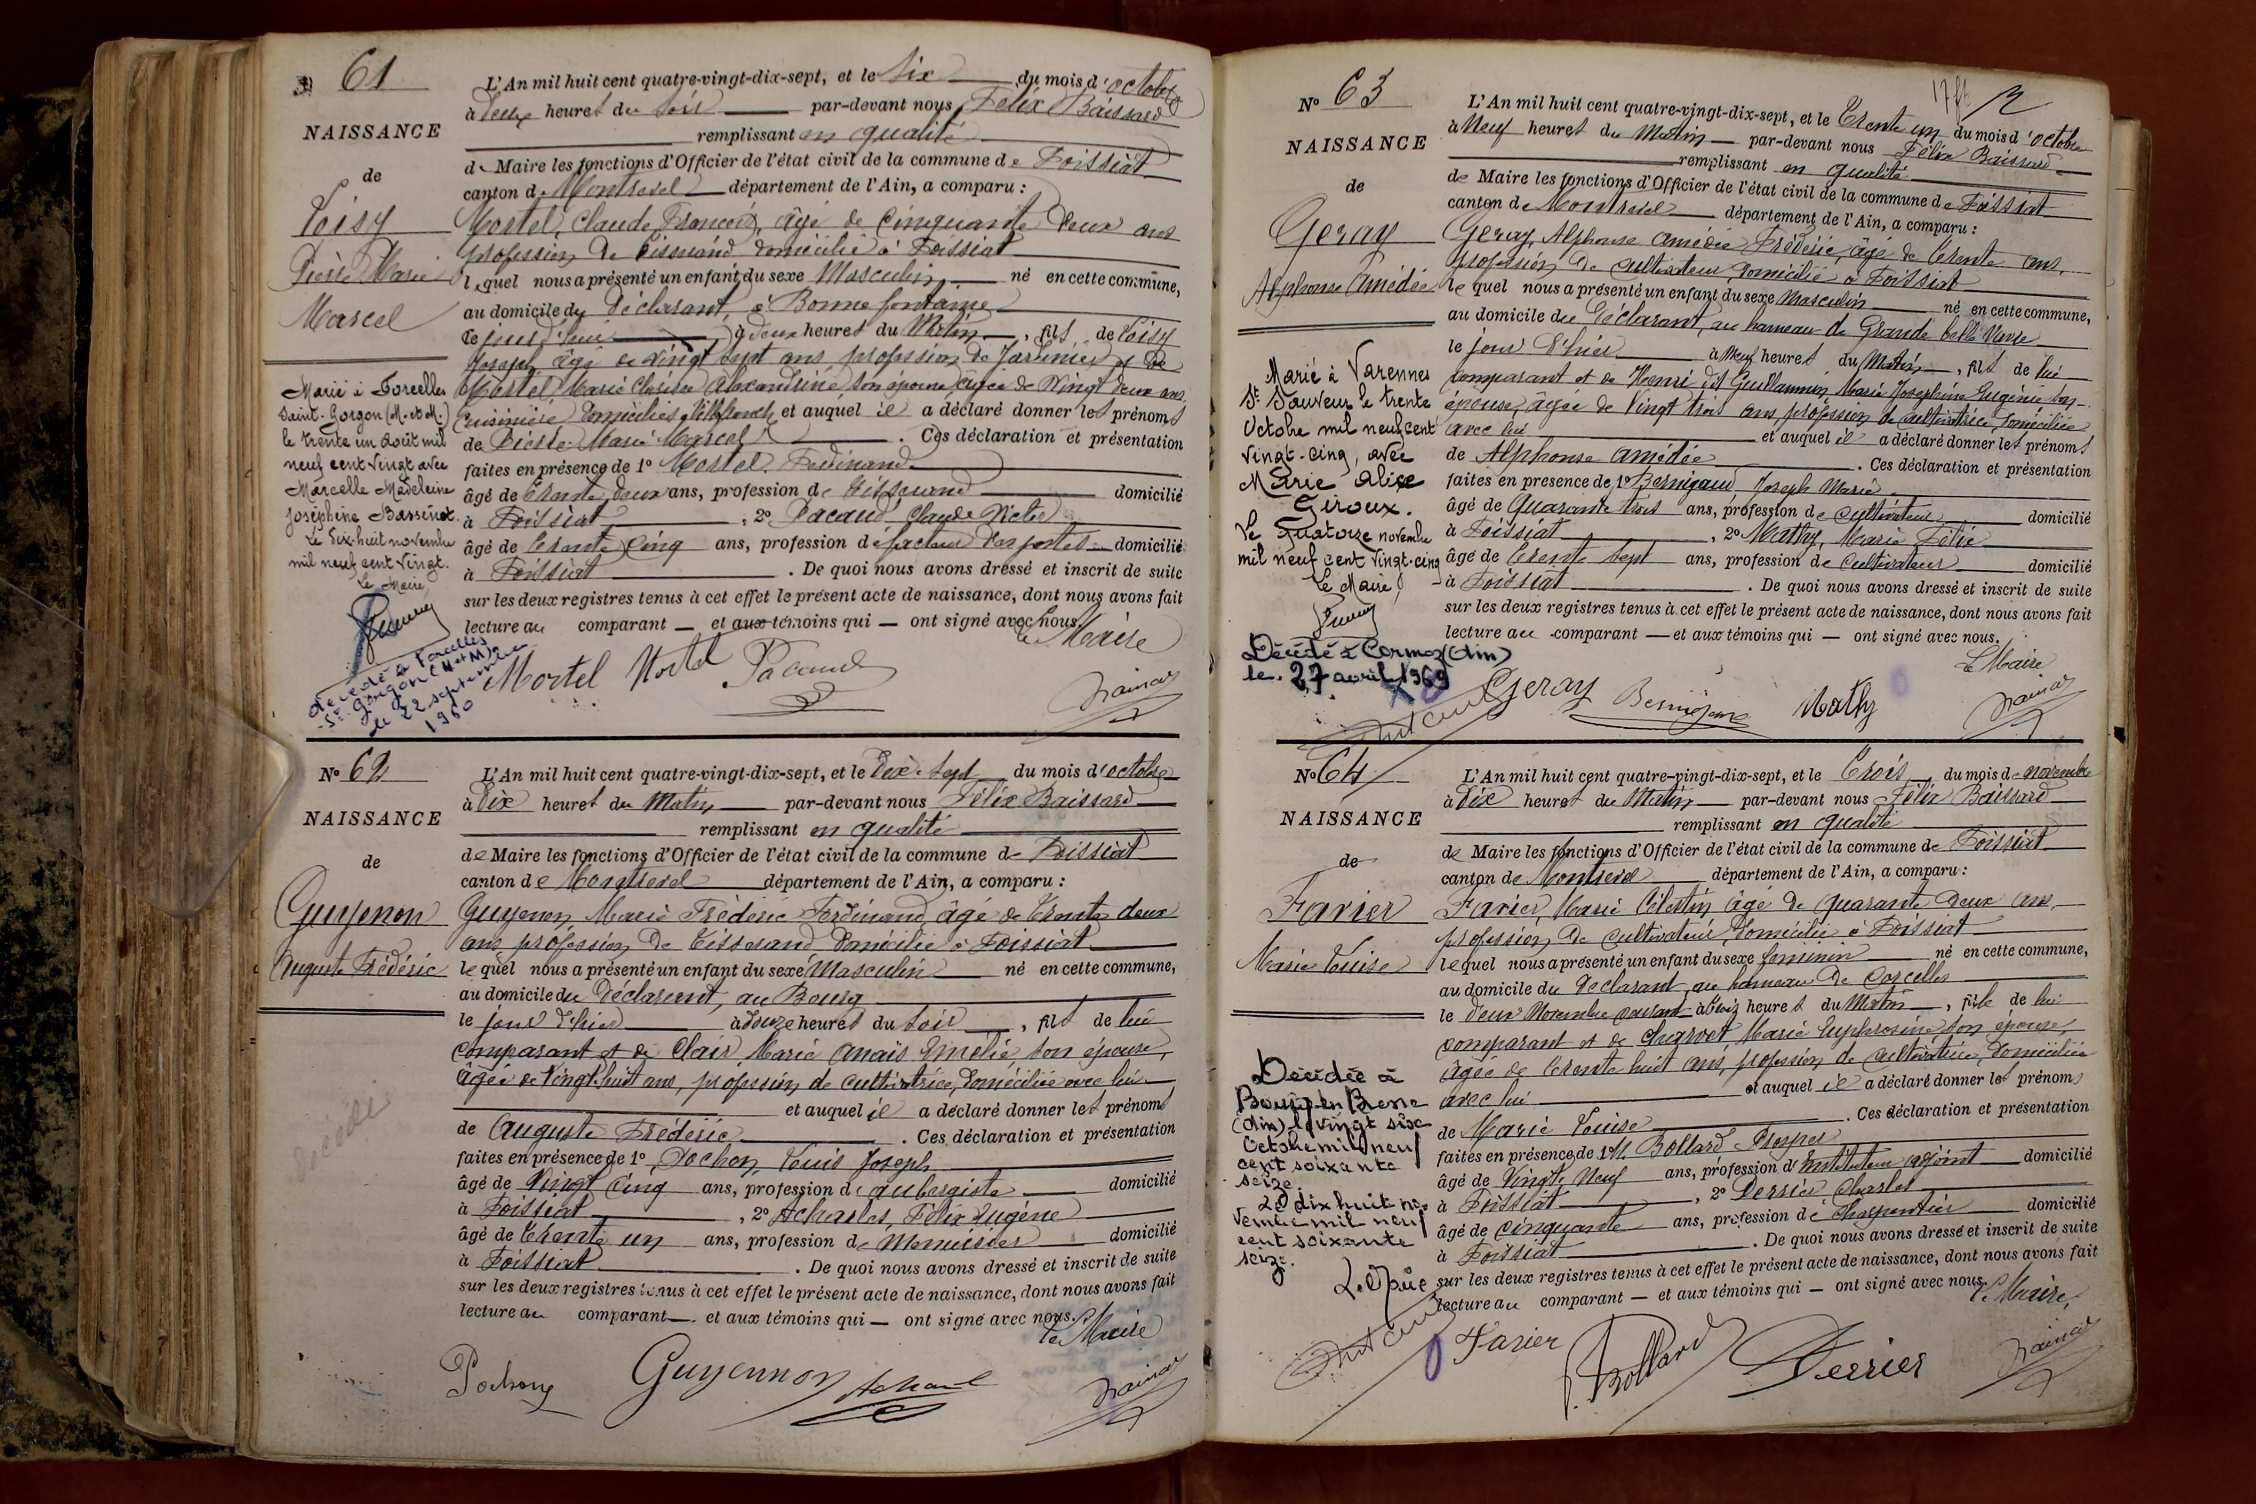 61
NAISSANCE
de
Loisy
Pierre Marie
Marcel
L'An mil huit cent quatre-vingt-dix-sept, et le Six du mois d'octobre
à Deux heures du Soir par-devant nous Félix Baissard
remplissant en qualité
de Maire les fonctions d'Officier de l'état civil de la commune de Foissiat
canton de Montrevel département de l'Ain, a comparu :
Mortel, Claude François, âgé de Cinquante Deux ans
profession de Tisserand domicilié à Foissiat
lequel nous a présenté un enfant du sexe Masculin né en cette commune,
au domicile du Déclarant, à Bonne fontaine
ce jourd'hui à deux heures du Matin, fils de Loisy
Joseph, âgé de vingt sept ans profession de Jardinier et de
Mortel, Marie Alexandrine son épouse, âgée de Vingt deux ans
Cuisinière domiciliés et auquel il a déclaré donner les prénoms
de Pierre Marie Marcel. Ces déclaration et présentation
faites en présence de 1º Mortel, Ferdinand
âgé de Trente deux ans, profession de Tisserand domicilié
à Foissiat, 2º Pacaud Claude Victor
âgé de Trente Cinq ans, profession de facteur des postes domicilié
à Foissiat. De quoi nous avons dressé et inscrit de suite
sur les deux registres tenus à cet effet le présent acte de naissance, dont nous avons fait
lecture au comparant — et aux témoins qui — ont signé avec nous.
Le Maire
Mortel Mortel Pacaud
Marié à Forcelles
Saint-Gorgon (M.et M.)
le trente un août mil
neuf cent vingt avec
Marcelle Madeleine
Joséphine Bassenot.
Le Dix-huit novembre
mil neuf cent vingt.
Le Maire
décédé à Forcelles
St Gorgon (M et M)
le 22 septembre
1960
Nº 62
NAISSANCE
de
Guyenon
Auguste Frédéric
L'An mil huit cent quatre-vingt-dix-sept, et le Dix-Sept du mois d'octobre
à Dix heures du Matin par-devant nous Félix Baissard
remplissant en qualité
de Maire les fonctions d'Officier de l'état civil de la commune de Foissiat
canton de Montrevel département de l'Ain, a comparu :
Guyenon, Marie Frédéric Ferdinand, âgé de Trente deux
ans, profession de Tisserand domicilié à Foissiat
lequel nous a présenté un enfant du sexe Masculin né en cette commune,
au domicile du Déclarant, au Bourg
le jour d'hier à douze heures du Soir, fils de lui
comparant et de Clair Marie Anaïs Emélie, son épouse,
âgée de Vingt huit ans, profession de cultivatrice, domiciliée avec lui
et auquel il a déclaré donner les prénoms
de Auguste Frédéric. Ces déclaration et présentation
faites en présence de 1º Pochon, Louis Joseph
âgé de Vingt Cinq ans, profession d'aubergiste domicilié
à Foissiat, 2º Acharles, Félix Eugène
âgé de Trente un ans, profession de Menuisier domicilié
à Foissiat. De quoi nous avons dressé et inscrit de suite
sur les deux registres tenus à cet effet le présent acte de naissance, dont nous avons fait
lecture au comparant — et aux témoins qui — ont signé avec nous.
Le Maire
Décédé
Pochon Guyennon
Nº 63
NAISSANCE
de
Geray
Alphonse Amédée
L'An mil huit cent quatre-vingt-dix-sept, et le Trente un du mois d'octobre
à Neuf heures du Matin par-devant nous Félix Baissard
remplissant en qualité
de Maire les fonctions d'Officier de l'état civil de la commune de Foissiat
canton de Montrevel département de l'Ain, a comparu :
Geray, Alphonse Amédée Frédéric, âgé de Trente ans,
profession de cultivateur, domicilié à Foissiat
lequel nous a présenté un enfant du sexe Masculin né en cette commune,
au domicile du Déclarant, au hameau de Grande belle Verse
le jour d'hier à Neuf heures du Matin, fils de lui
comparant et de Henri dit Guillaumin, Marie Joséphine Eugénie son
épouse, âgée de Vingt trois ans, profession de cultivatrice, domiciliée
avec lui et auquel il a déclaré donner les prénoms
de Alphonse Amédée. Ces déclaration et présentation
faites en presence de 1º Bernigaud, Joseph Marie
âgé de Quarante trois ans, profession de cultivateur domicilié
à Foissiat, 2º Mathy, Marie Félix
âgé de Trente Sept ans, profession de Cultivateur domicilié
à Foissiat. De quoi nous avons dressé et inscrit de suite
sur les deux registres tenus à cet effet le présent acte de naissance, dont nous avons fait
lecture au comparant — et aux témoins qui — ont signé avec nous.
Le Maire
Geray Mathy
Marié à Varennes
St Sauveur le trente
Octobre mil neuf cent
vingt-cinq, avec
Marie Alice
Giroux.
Le Quatorze novembre
mil neuf cent vingt-cinq
Le Maire
Décédé à Cormoz (Ain)
le 27 avril 1969
Nº 64
NAISSANCE
de
Favier
Marie Louise
L'An mil huit cent quatre-vingt-dix-sept, et le Trois du mois de novembre
à Dix heures du Matin par-devant nous Félix Baissard
remplissant en qualité
de Maire les fonctions d'Officier de l'état civil de la commune de Foissiat
canton de Montrevel département de l'Ain, a comparu :
Favier, Marie Célestin âgé de quarante deux ans,
profession de cultivateur, domicilié à Foissiat
lequel nous a présenté un enfant du sexe féminin né en cette commune,
au domicile du Déclarant au hameau de Corcelles
le deux Novembre courant à trois heures du Matin, fille de lui
comparant et de Marie Euphrosine son épouse,
âgée de Trente huit ans, profession de cultivatrice, domiciliée
avec lui et auquel il a déclaré donner les prénoms
de Marie Louise. Ces déclaration et présentation
faites en présence de 1º M. Bollard Prosper
âgé de Vingt Neuf ans, profession d'Instituteur adjoint domicilié
à Foissiat, 2º Perrier Charles
âgé de cinquante ans, profession de charpentier domicilié
à Foissiat. De quoi nous avons dressé et inscrit de suite
sur les deux registres tenus à cet effet le présent acte de naissance, dont nous avons fait
lecture au comparant — et aux témoins qui — ont signé avec nous.
Le Maire,
Favier Bollard Perrier
Décédée à
Bourg-en-Bresse
(Ain) le vingt six
Octobre mil neuf
cent soixante
seize.
Le dix huit no-
vembre mil neuf
cent soixante
seize.